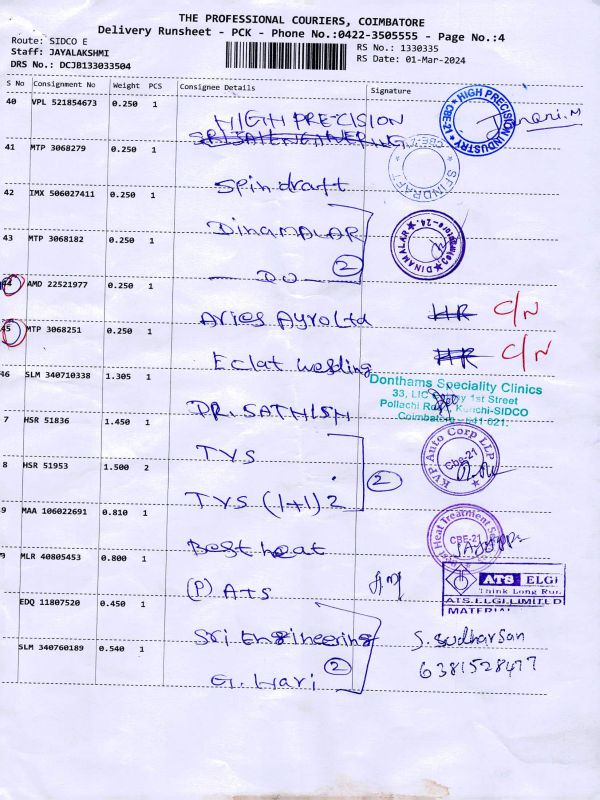 THE PROFESSIONAL COURIERS, COIMBATORE
Delivery Runsheet - PCK - Phone No.:0422-3505555 - Page No.:4
Route: SIDCO E
Staff: JAYALAKSHMI
DRS No.: DCJB133033504
RS No.: 1330335
RS Date: 01-Mar-2024
S No Consignment No Weight PCS Consignee Details Signature
40 VPL 521854673 0.250 1
HIGH PRECISION
HIGH PRECISION INDUSTRY CBE-21
41 MTP 3068279 0.250 1
Spindraft
SPINDRAFT CBE-21
42 IMX 506027411 0.250 1
DinaMALAR
DINAMALAR
43 MTP 3068182 0.250 1
DO
2
44 AMD 22521977 0.250 1
Aries Ayro Ltd
HR C/N
45 MTP 3068251 0.250 1
Eclat welding
HR C/N
46 SLM 340710338 1.305 1
DR. SATHISH
Donthams Speciality Clinics
33, LIC 1st Street
Pollachi Road, Kurichi-SIDCO
Coimbatore - 641 021.
7 HSR 51836 1.450 1
TVS
K.V.P. Auto Corp LLP Cbe-21
8 HSR 51953 1.500 2
TVS (1+1) 2
2
9 MAA 106022691 0.810 1
Best heat
Heat Treatment CBE-21
9 MLR 40805453 0.800 1
(P) ATS
ATS ELGI
Think Long Run.
ATS.ELGI.LIMITED
MATERIAL
EDQ 11807520 0.450 1
Sri Engineering
S. Sudharsan
6381528477
SLM 340760189 0.540 1
G. Hari
2